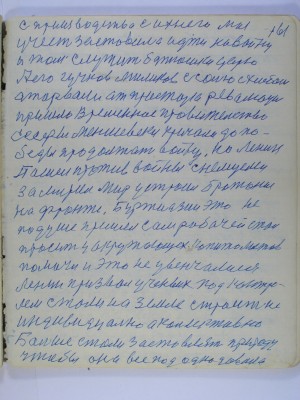 с производства с ихнего мая 161
учестзаставила идти на войну
и там служить Батюшки царю
Лето гучков милюков с
атарвали от престола революцыи
пришло Временное провительство
есеры Меньшевеки кричали до по-
беды продолжать войну, но Ленин
Памел против войны с немцеми
за мир и мир устроил братоны
на фронте. Буржуазии это не
подуше пришел сам рабочей стал
просить у окружающих Капиталистов
помачи и Это не увенчалось
Ленин призвал ученых под контро-
лем стали на Земле строить не
индивидуально а колективно
Банше стали заставлять природу
чтобы она всепод одно давала